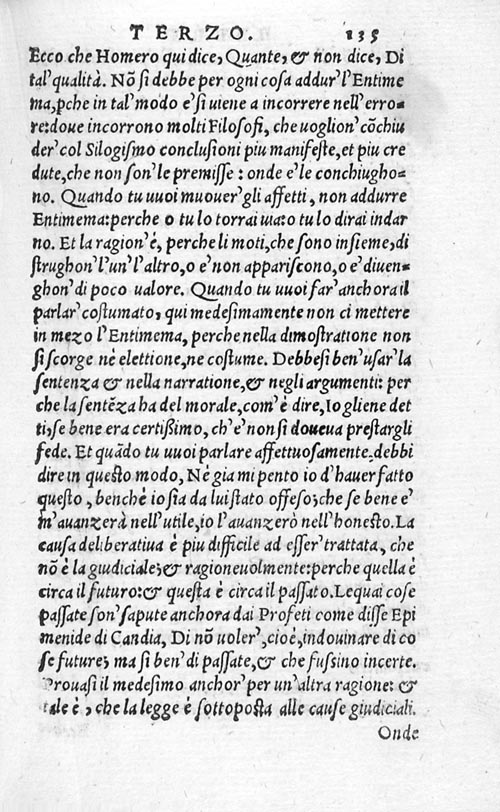 TERZO. 135
Ecco che Homero qui dice, Quante, & non dice, Di
tal' qualità. Nõ si debbe per ogni cosa addur' l'Entime
ma, pche in tal' modo e' si viene a incorrere nell' erro-
re: doue incorrono molti Filosofi, che voglion' cõchiu
der' col Silogismo conclusioni piu manifeste, et piu cre
dute, che non son' le premisse : onde e' le conchiugho-
no. Quando tu vuoi muouer' gli affetti, non addurre
Entimema: perche o tu lo torrai uia: o tu lo dirai indar
no. Et la ragion' é, perche li moti, che sono insieme, di
strughon' l'un' l'altro, o e' non appariscono, o e' diuen-
ghon' di poco valore. Quando tu vuoi far' anchora il
parlar' costumato, qui medesimamente non ci mettere
in mezo l'Entimema, perche nella dimostratione non
si scorge né elettione, ne costume. Debbesi ben' usar' la
sentenza & nella narratione, & negli argumenti: per
che la sentẽza ha del morale, com' è dire, Io gliene det
ti, se bene era certißimo, ch' e' non si doueva prestargli
fede. Et quãdo tu vuoi parlare affettuosamente, debbi
dire in questo modo, Né gia mi pento io d'hauer fatto
questo, benché io sia da lui stato offeso; che se bene e'
m'auanzerà nell' utile, io l'auanzerò nell' honesto. La
causa deliberatiua è piu difficile ad esser' trattata, che
nõ è la giudiciale; & ragioneuolmente: perche quella è
circa il futuro: & questa è circa il passato. Lequai cose
passate son' sapute anchora dai Profeti come disse Epi
menide di Candia, Di nõ voler', cioé, indouinare di co
se future; ma si ben' di passate, & che fussino incerte.
Prouasi il medesimo anchor' per un' altra ragione: &
tale è, che la legge é sottoposta alle cause giudiciali.
Onde